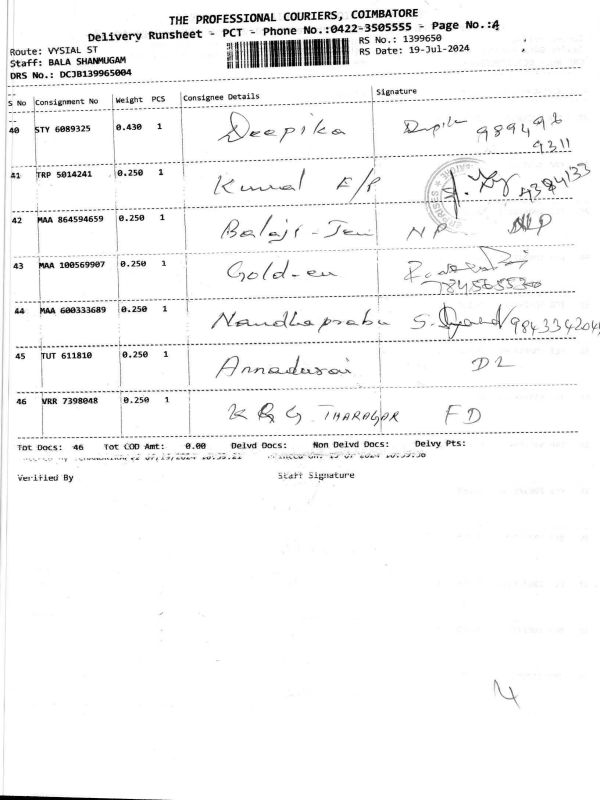 THE PROFESSIONAL COURIERS, COIMBATORE
Delivery Runsheet - PCT - Phone No.:0422-3505555 - Page No.:4
Route: VYSIAL ST RS No.: 1399650
Staff: BALA SHANMUGAM RS Date: 19-Jul-2024
DRS No.: DCJB139965004
S No Consignment No Weight PCS Consignee Details Signature
40 STY 6089325 0.430 1 Deepika 989496
9311
41 TRP 5014241 0.250 1 Kumal E/P 9384133
42 MAA 864594659 0.250 1 Balaji - NP NP
43 MAA 100569907 0.250 1 Gold-en
44 MAA 600333689 0.250 1 Nandhaprabu
45 TUT 611810 0.250 1 Annadurai D2
46 VRR 7398048 0.250 1 THARAGAR FD
Tot Docs: 46 Tot COD Amt: 0.00 Delvd Docs: Non Delvd Docs: Delvy Pts:
Verified By Staff Signature
4